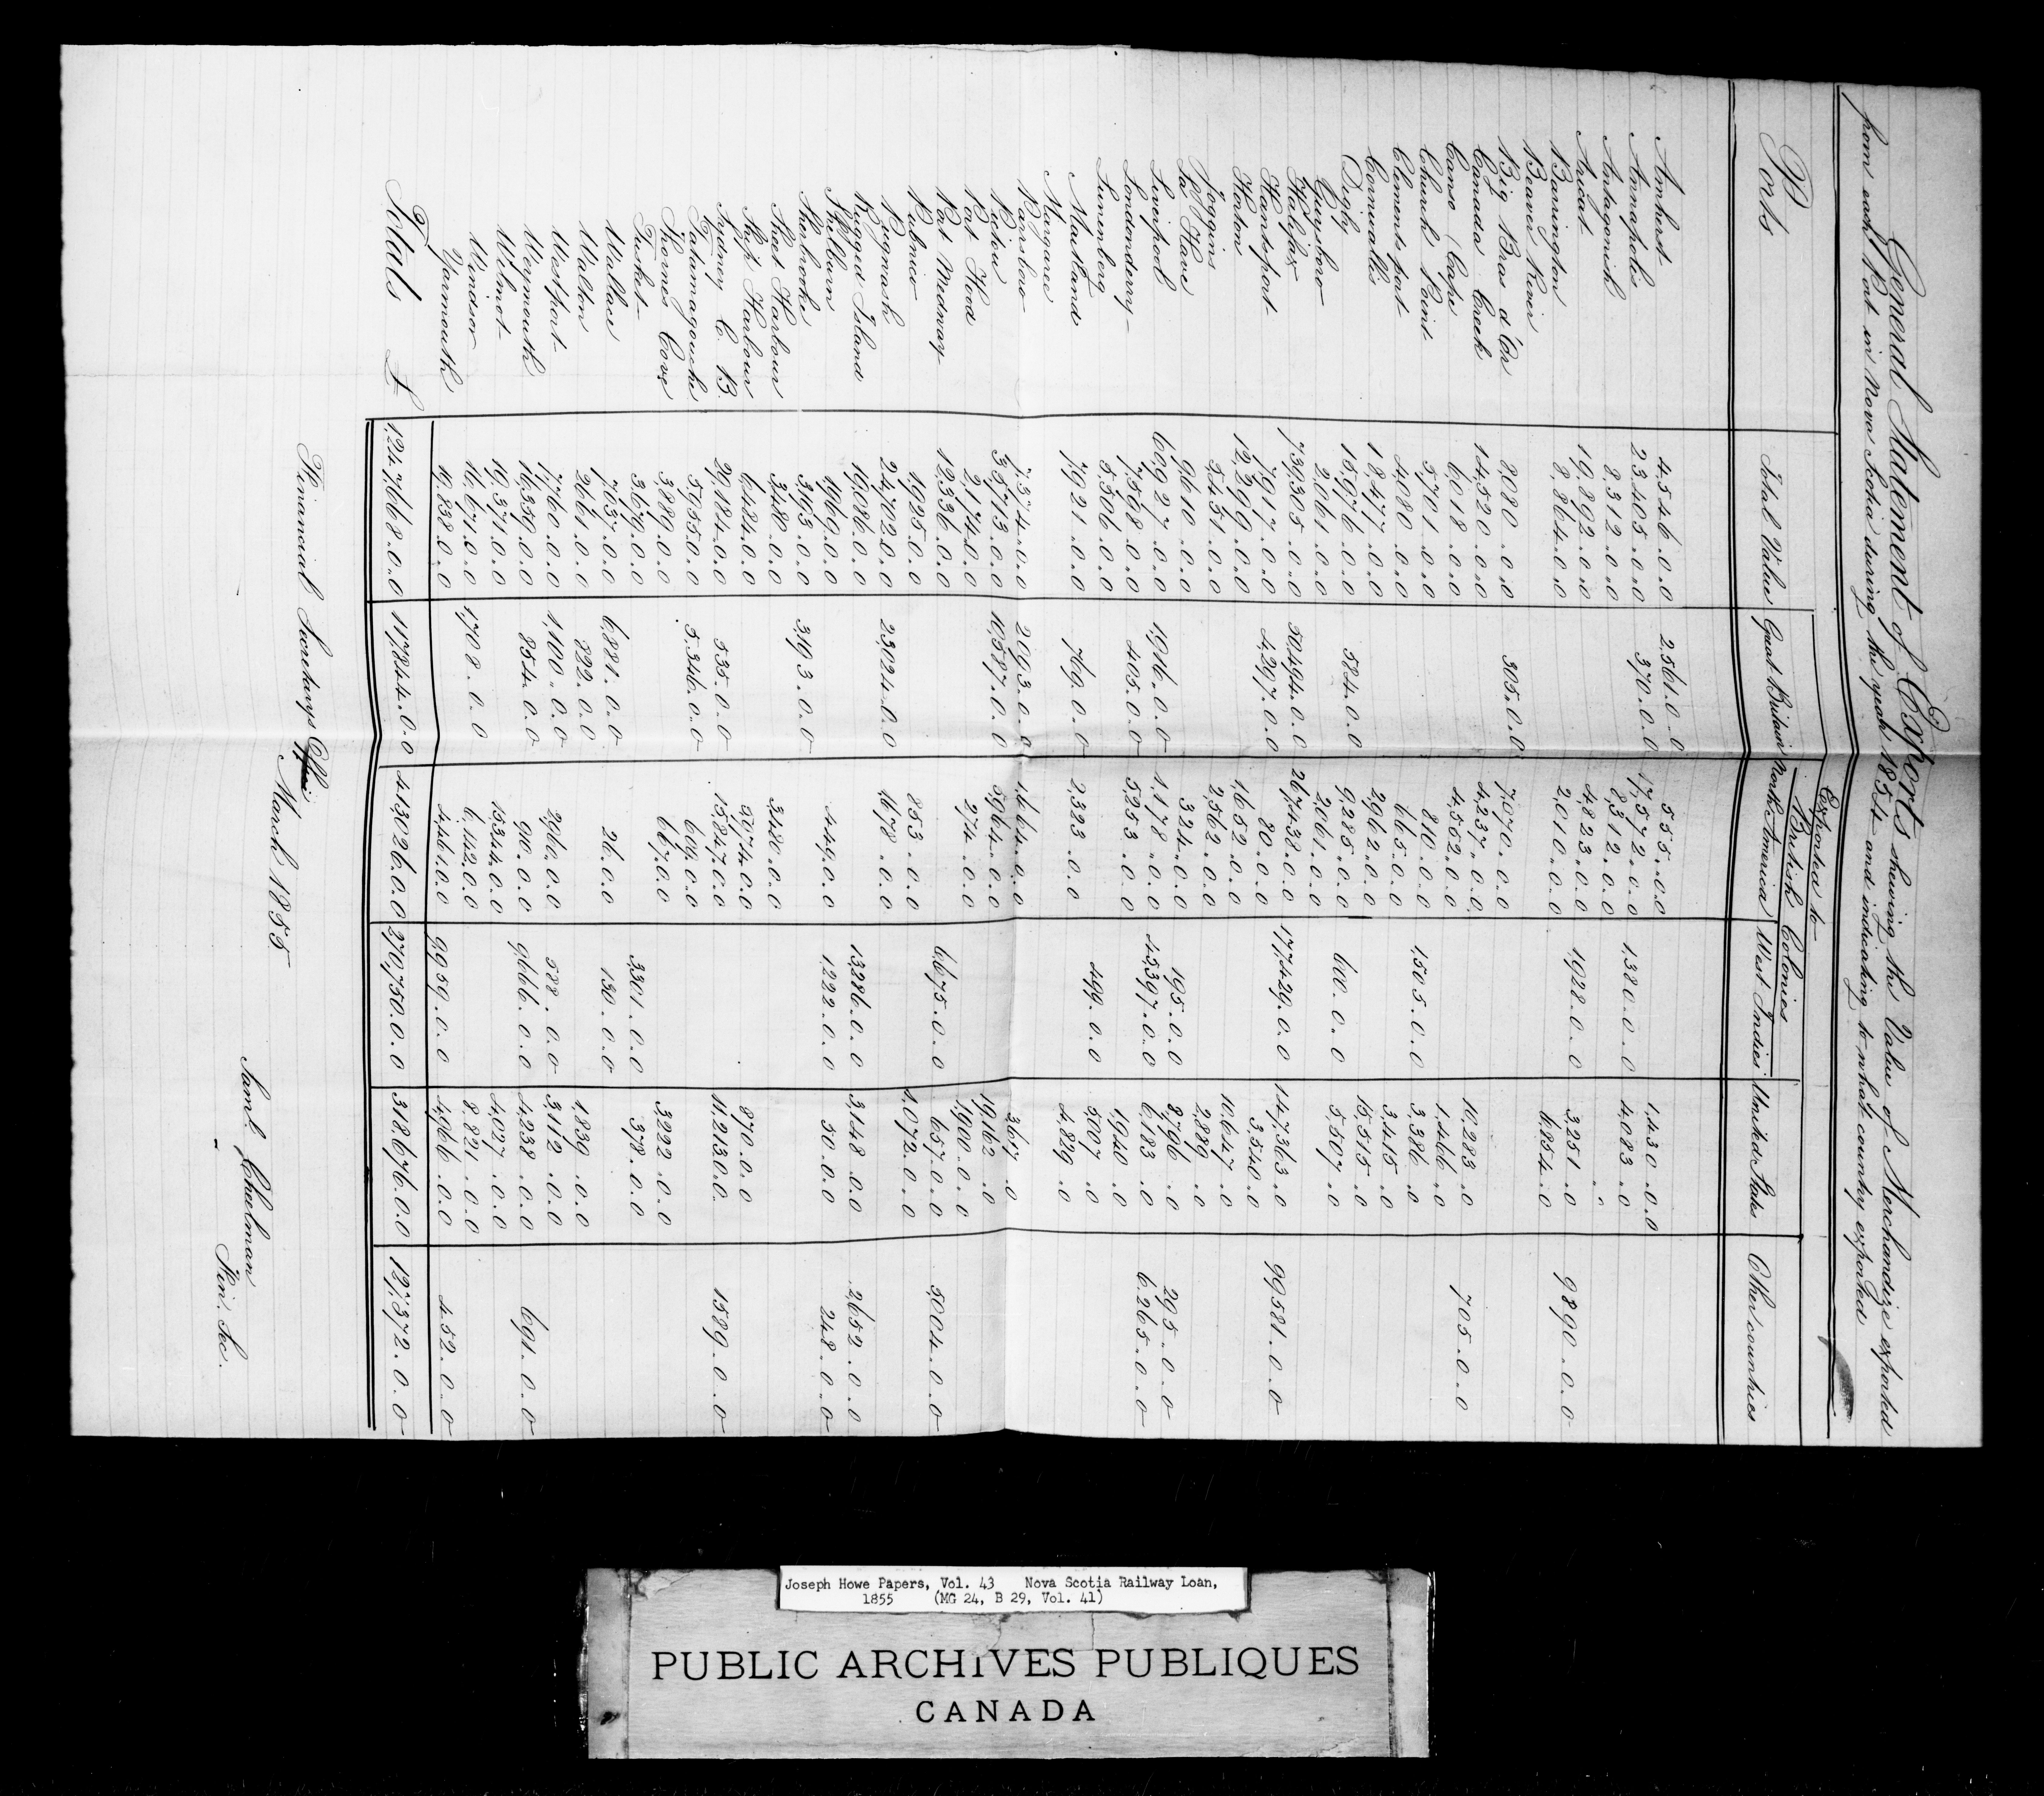 General Statement of Exports shewing the Value of Merchandize exported
from each Port in Nova Scotia during the year 1854 and indicating to what country exported
Exported to
British Colonies
Ports Total Value Great Britain North America West Indies United States Other countries
Amherst 4,546..0..0 2,561..0..0 555..0..0 1,430..0..0
Annapolis 23,405..0..0 370..0..0 17,572..0..0 1,380..0..0 4,083..0
Antagonish 8,312..0..0 8,312..0..0 " "
Arichat 19,892..0..0 4,823..0..0 1,928..0..0 3,251..0 9,890..0..0
Barrington 8,864..0..0 2,010..0..0 6,854..0
Beaver River
Big Bras d'Or 8,080..0..0 305..0..0 7,070..0..0 705..0..0
Canada Creek 14,520..0..0 4,237..0..0 10,283..0
Canso (Cape) 6,018..0..0 4,552..0..0 1,466..0
Church Point 5,701..0..0 810..0..0 1,505..0..0 3,386..0
Clementsport 4,080..0..0 665..0..0 3,415..0
Cornwallis 18,477..0..0 2,962..0..0 15,515..0
Digby 15,976..0..0 584..0..0 9,285..0..0 600..0..0 5,507..0
Guysboro 2,061..0..0 2,061..0..0
Halifax 739,305..0..0 50,494..0..0 267,438..0..0 174,429..0..0 147,363..0 99,581..0..0
Hantsport 7,917..0..0 4,297..0..0 80..0..0 3,540..0
Horton 12,299..0..0 1,652..0..0 10,647..0
Joggins 5,451..0..0 2,562..0..0 2,889..0
La Have 9610..0..0 324..0..0 195..0..0 8,796..0 295..0..0
Liverpool 60,927..0..0 1,916..0..0 1,178..0..0 45,397..0..0 6,183..0 6,265..0..0
Londonderry 7,598..0..0 405..0..0 5,253..0..0 1,940..0
Lunenburg 5,506..0..0 499..0..0 5,007..0
Maitland 7,921..0..0 769..0..0 2,323..0..0 4,829..0
Margaree
Parrsboro 7,374..0..0 2,093..0..0 1,664..0..0 3,617..0
Pictou 35,713..0..0 10,587..0..0 5,964..0..0 19,162..0
Port Hood 2,174..0..0 274..0..0 1,900..0..0
Port Medway 12,336..0..0 6,675..0..0 657..0..0 5,004..0..0
Pubnico 1,925..0..0 853..0..0 1,072..0..0
Pugwash 24,702..0..0 23,024..0..0 1,678..0..0
Ragged Island 19,086..0..0 13,286..0..0 3,148..0..0 2,652..0..0
Shelburn 1,969..0..0 449..0..0 1,222..0..0 50..0..0 248..0..0
Sherbrooke 3,193..0..0 3,193..0..0
Sheet Harbour 3,480..0..0 3,480..0..0
Ship Harbour 6,484..0..0 5,074..0..0 870..0..0
Sydney C. B. 29,184..0..0 535..0..0 15,847..0..0 11,213..0..0 1,589..0..0
Tatamagouche 5,955..0..0 5,346..0..0 609..0..0
Thornes Cove 3,889..0..0 667..0..0 3,222..0..0
Tusket 3,679..0..0 3,301..0..0 378..0..0
Wallace 7,037..0..0 6,881..0..0 26..0..0 130..0..0
Walton 2,661..0..0 822..0..0 1,839..0..0
Westport 7,760..0..0 1,100..0..0 2,960..0..0 588..0..0 3,112..0..0
Weymouth 15,539..0..0 854..0..0 90..0..0 9,666..0..0 4,238..0..0 691..0..0
Wilmot 19,371..0..0 15,344..0..0 4,027..0..0
Windsor 16,671..0..0 1,708..0..0 6,142..0..0 8,821..0..0
Yarmouth 19,838..0..0 4,461..0..0 9,959..0..0 4,966..0..0 452..0..0
Totals £ 1,247,668..0..0 117,844..0..0 413,026..0..0 270,750..0..0 318,676..0..0 127,372..0..0
Financial Secretarys Office
March 1855
Saml. Chelman
Fin. Sec.
Joseph Howe Papers, Vol. 43 Nova Scotia Railway Loan,
1855 (MG 24, B 29, Vol. 41)
PUBLIC ARCHIVES PUBLIQUES
CANADA